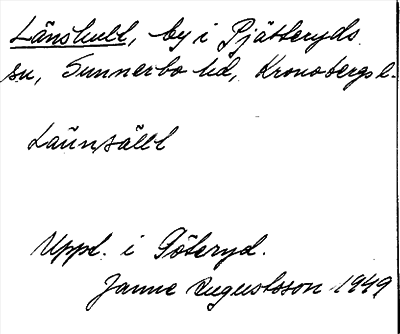 Länshult, by i Pjätteryds
sn, Sunnerbo hd, Kronobergs l.
Uppt. i Göteryd.
Janne Augustsson 1949